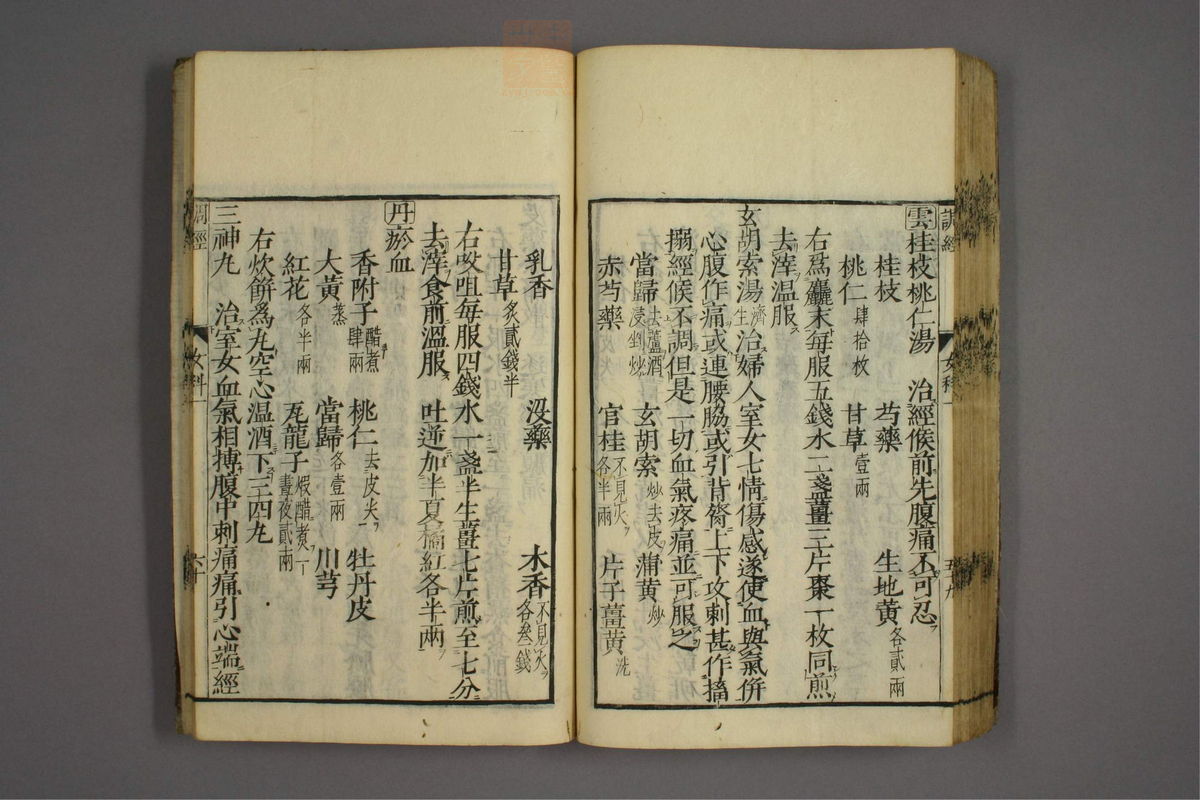 調經 女科一 五十九
雲桂枝桃仁湯 治經候前先腹痛不可忍
桂枝 芍藥 生地黃各貳兩
桃仁肆拾枚 甘草壹兩
右爲麤末每服五錢水二盞薑三片棗一枚同煎
去滓溫服
玄胡索湯濟生治婦人室女七情傷感遂使血與氣併
心腹作痛或連腰脇或引背膂上下攻刺甚作搐
搦經候不調但是一切血氣疼痛並可服之
當歸去蘆酒浸剉炒 玄胡索炒去皮 蒲黃炒
赤芍藥 官桂不見火各半兩 片子薑黃洗
乳香 沒藥 木香不見火各叁錢
甘草炙貳錢半
右㕮咀每服四錢水一盞半生薑七片煎至七分
去滓食前溫服 吐逆加半夏橘紅各半兩
丹瘀血
香附子醋煮肆兩 桃仁去皮尖 牡丹皮
大黃蒸 當歸各壹兩 川芎
紅花各半兩 瓦龍子煆醋煮一晝夜貳兩
右炊餅爲丸空心温酒下三四丸
三神丸 治室女血氣相搏腹中刺痛痛引心端經
調經 女科一 六十